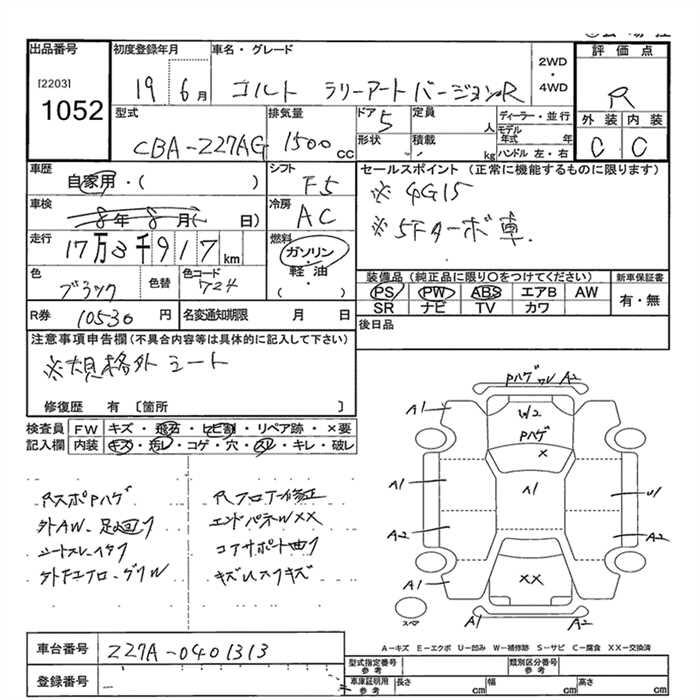 出品番号
[2203]
1052
初度登録年月
19 6月
車名・グレード
コルト ラリーアート バージョンR
2WD
・
4WD
評価点
R
外装 内装
C C
型式
CBA-Z27AG
排気量
1500 cc
ドア
5
定員
人
形状
積載
kg
ディーラー・並行
モデル年式 年
ハンドル 左・右
車歴
自家用・( )
シフト
F5
車検
8年 8月( 日)
冷房
AC
走行
17万3千917km
燃料
ガソリン・
軽油・
( )
色
ブラック
色替
色コード
724
R券 10530 円
名変通知期限 月 日
セールスポイント (正常に機能するものに限ります)
※ 4G15
※ 5Fターボ車.
装備品 (純正品に限り〇をつけてください)
PS PW ABS エアB AW
SR ナビ TV カワ
新車保証書
有・無
後日品
注意事項申告欄(不具合内容等は具体的に記入して下さい)
※規格外シート
修復歴 有 〔箇所 〕
検査員記入欄
FW キズ・飛石・ヒビ割・リペア跡・×要
内装 キズ・汚レ・コゲ・穴・スレ・キレ・破レ
PハゲWレ A2
A1
W2
Pハゲ
×
A1
A1
A1
U1
A2
A2
A1
××
A1
A2
スペア
RスポPハゲ
外AW、足廻り
Rフロアー修正
エンドパネルW××
コアサポート曲り
A-キズ E-エクボ U-凹み W-補修跡 S-サビ C-腐食 XX-交換済
車台番号
Z27A-0401313
登録番号
型式指定番号
参考
類別区分番号
参考
車庫証明用
参考
長さ cm 幅 cm 高さ cm